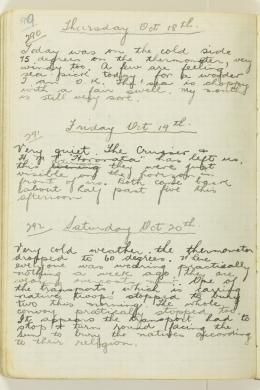 290 Thursday Oct 18th.
Today was on the cold side
75 degrees on the thermometer, very
windy too. A few are feeling
sea-sick today for a wonder
I am O.K. The sea is choppy
with a fair swell. My mouth
is still very sore.
291 Friday Oct 19th.
Very quiet. The Cruiser &
H.M.T. "Honorata" has left us
this evening they were just
visible on the horizon in
front of us. Both came back
about half past five this
afternoon
292 Saturday Oct 20th
Very cold weather. the thermometer
dropped to 60 degrees. Where
everyone was wearing practically
nothing a week ago they are
wearing overcoats. One of
the transports which is carrying
native troops stopped to bury
two this morning. The whole
convoy practically stopped too.
It appears the transport had to
stop & turn round facing the
sun to bury the natives according
to their religion.